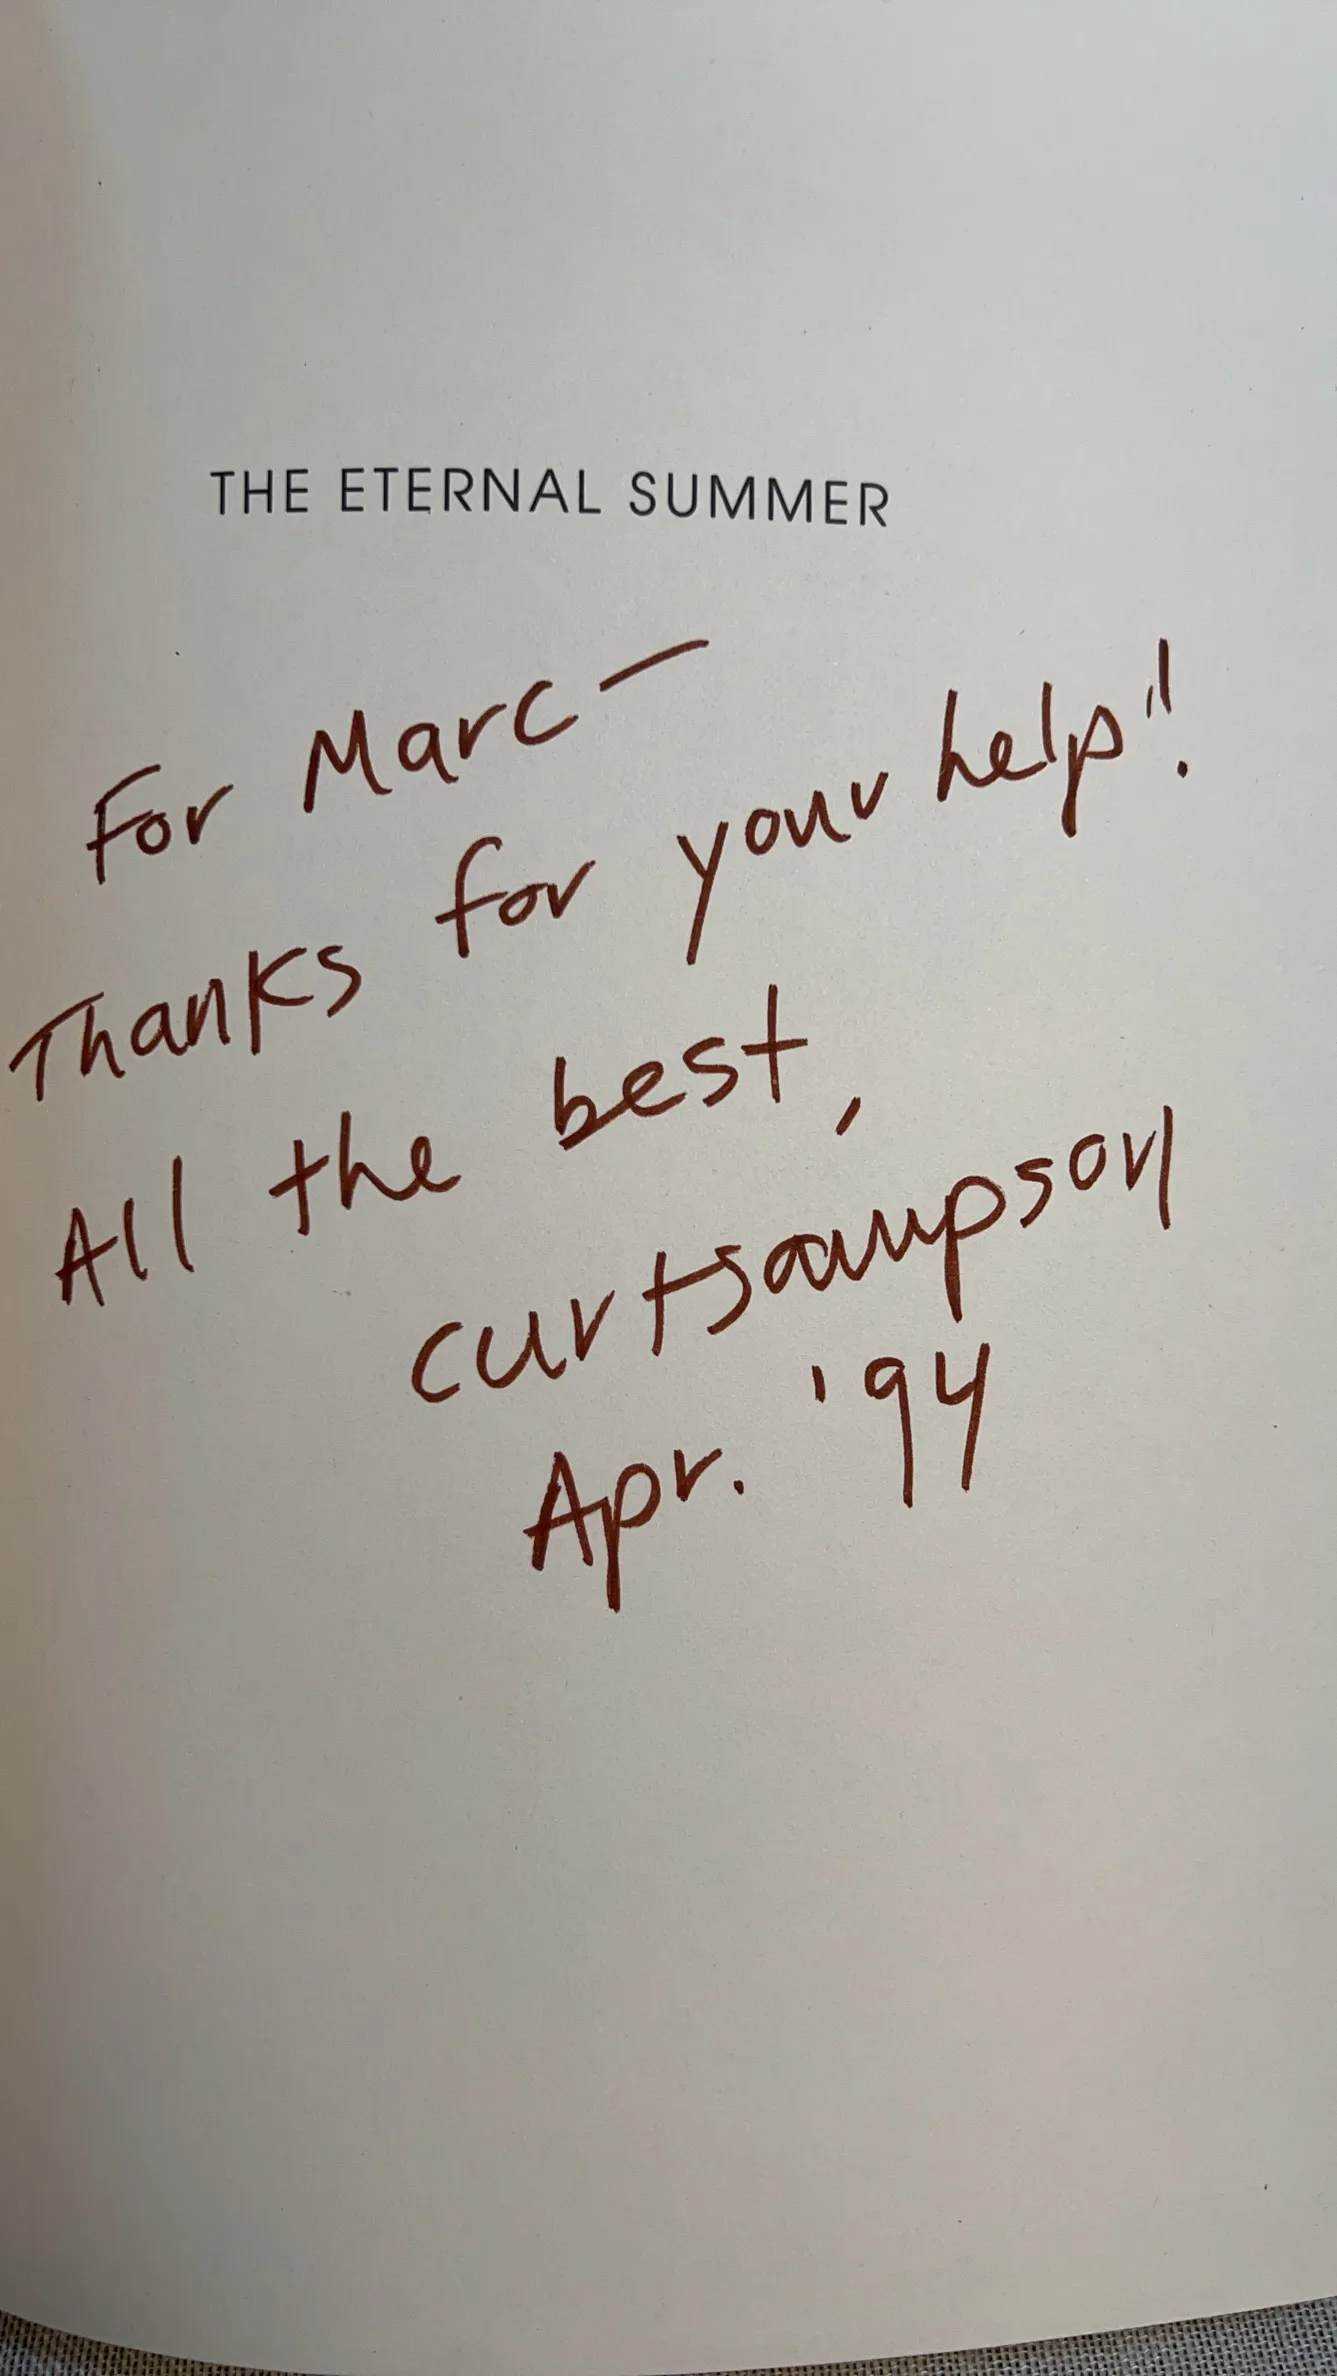 THE ETERNAL SUMMER
For Marc —
Thanks for your help!
All the best,
curtsampson
Apr. '94